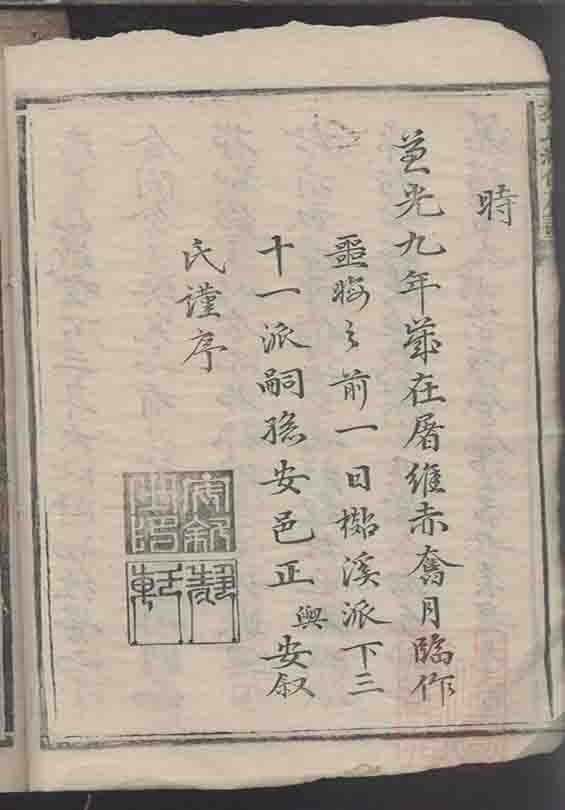 時
道光九年歲在屠維赤奮月臨作
噩晦之前一日櫾溪派下三
十一派嗣孫安邑正輿安叙
氏謹序